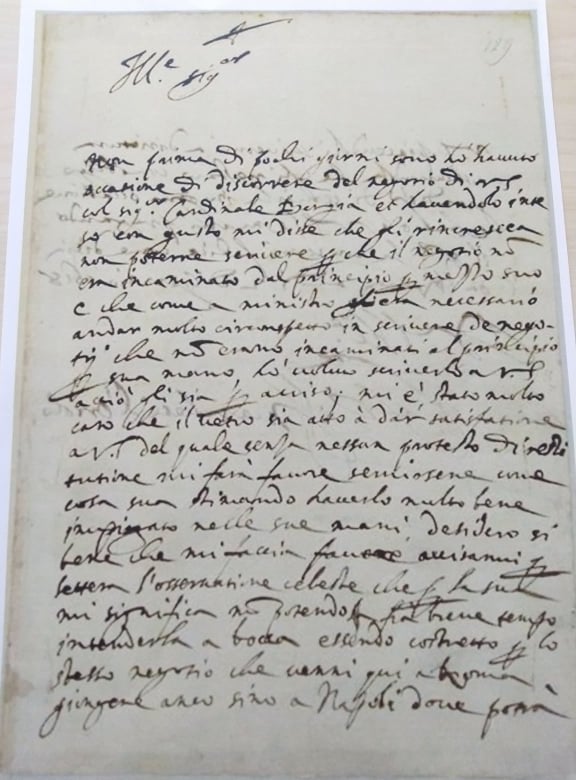 129
Ill.e
sig.or
Non prima di pochi giorni sono ho havuto
occasione di discorrere del negotio di V.S.
col sig.or Cardinale Borgia et havendolo inte
so con gusto mi disse che gli rincresceva
non poterne scrivere p che il negotio nõ
era incaminato dal principio p mezzo suo
e che come a ministro gli era necessario
andar molto circonspetto in scrivere de nego-
tij che nõ erano incaminati al principio
p sua mano. hò voluto scriverlo a V.S.
acciò gli sia p avviso; mi è stato molto
caro che il vetro sia atto à dar satisfatione
a V.S. del quale senza nessun protesto di resti
tutione mi farà favore servirsene come
cosa sua stimando haverlo molto bene
impiegato nelle sue mani, desidero si
bene che mi faccia favore avisarmi p
lettera l'osservatione celeste che p la sua
mi significa nõ potendo fra breve tempo
intenderla a bocca essendo costretto p lo
stesso negotio che venni qui a Roma
giongere anco sino a Napoli dove potrà